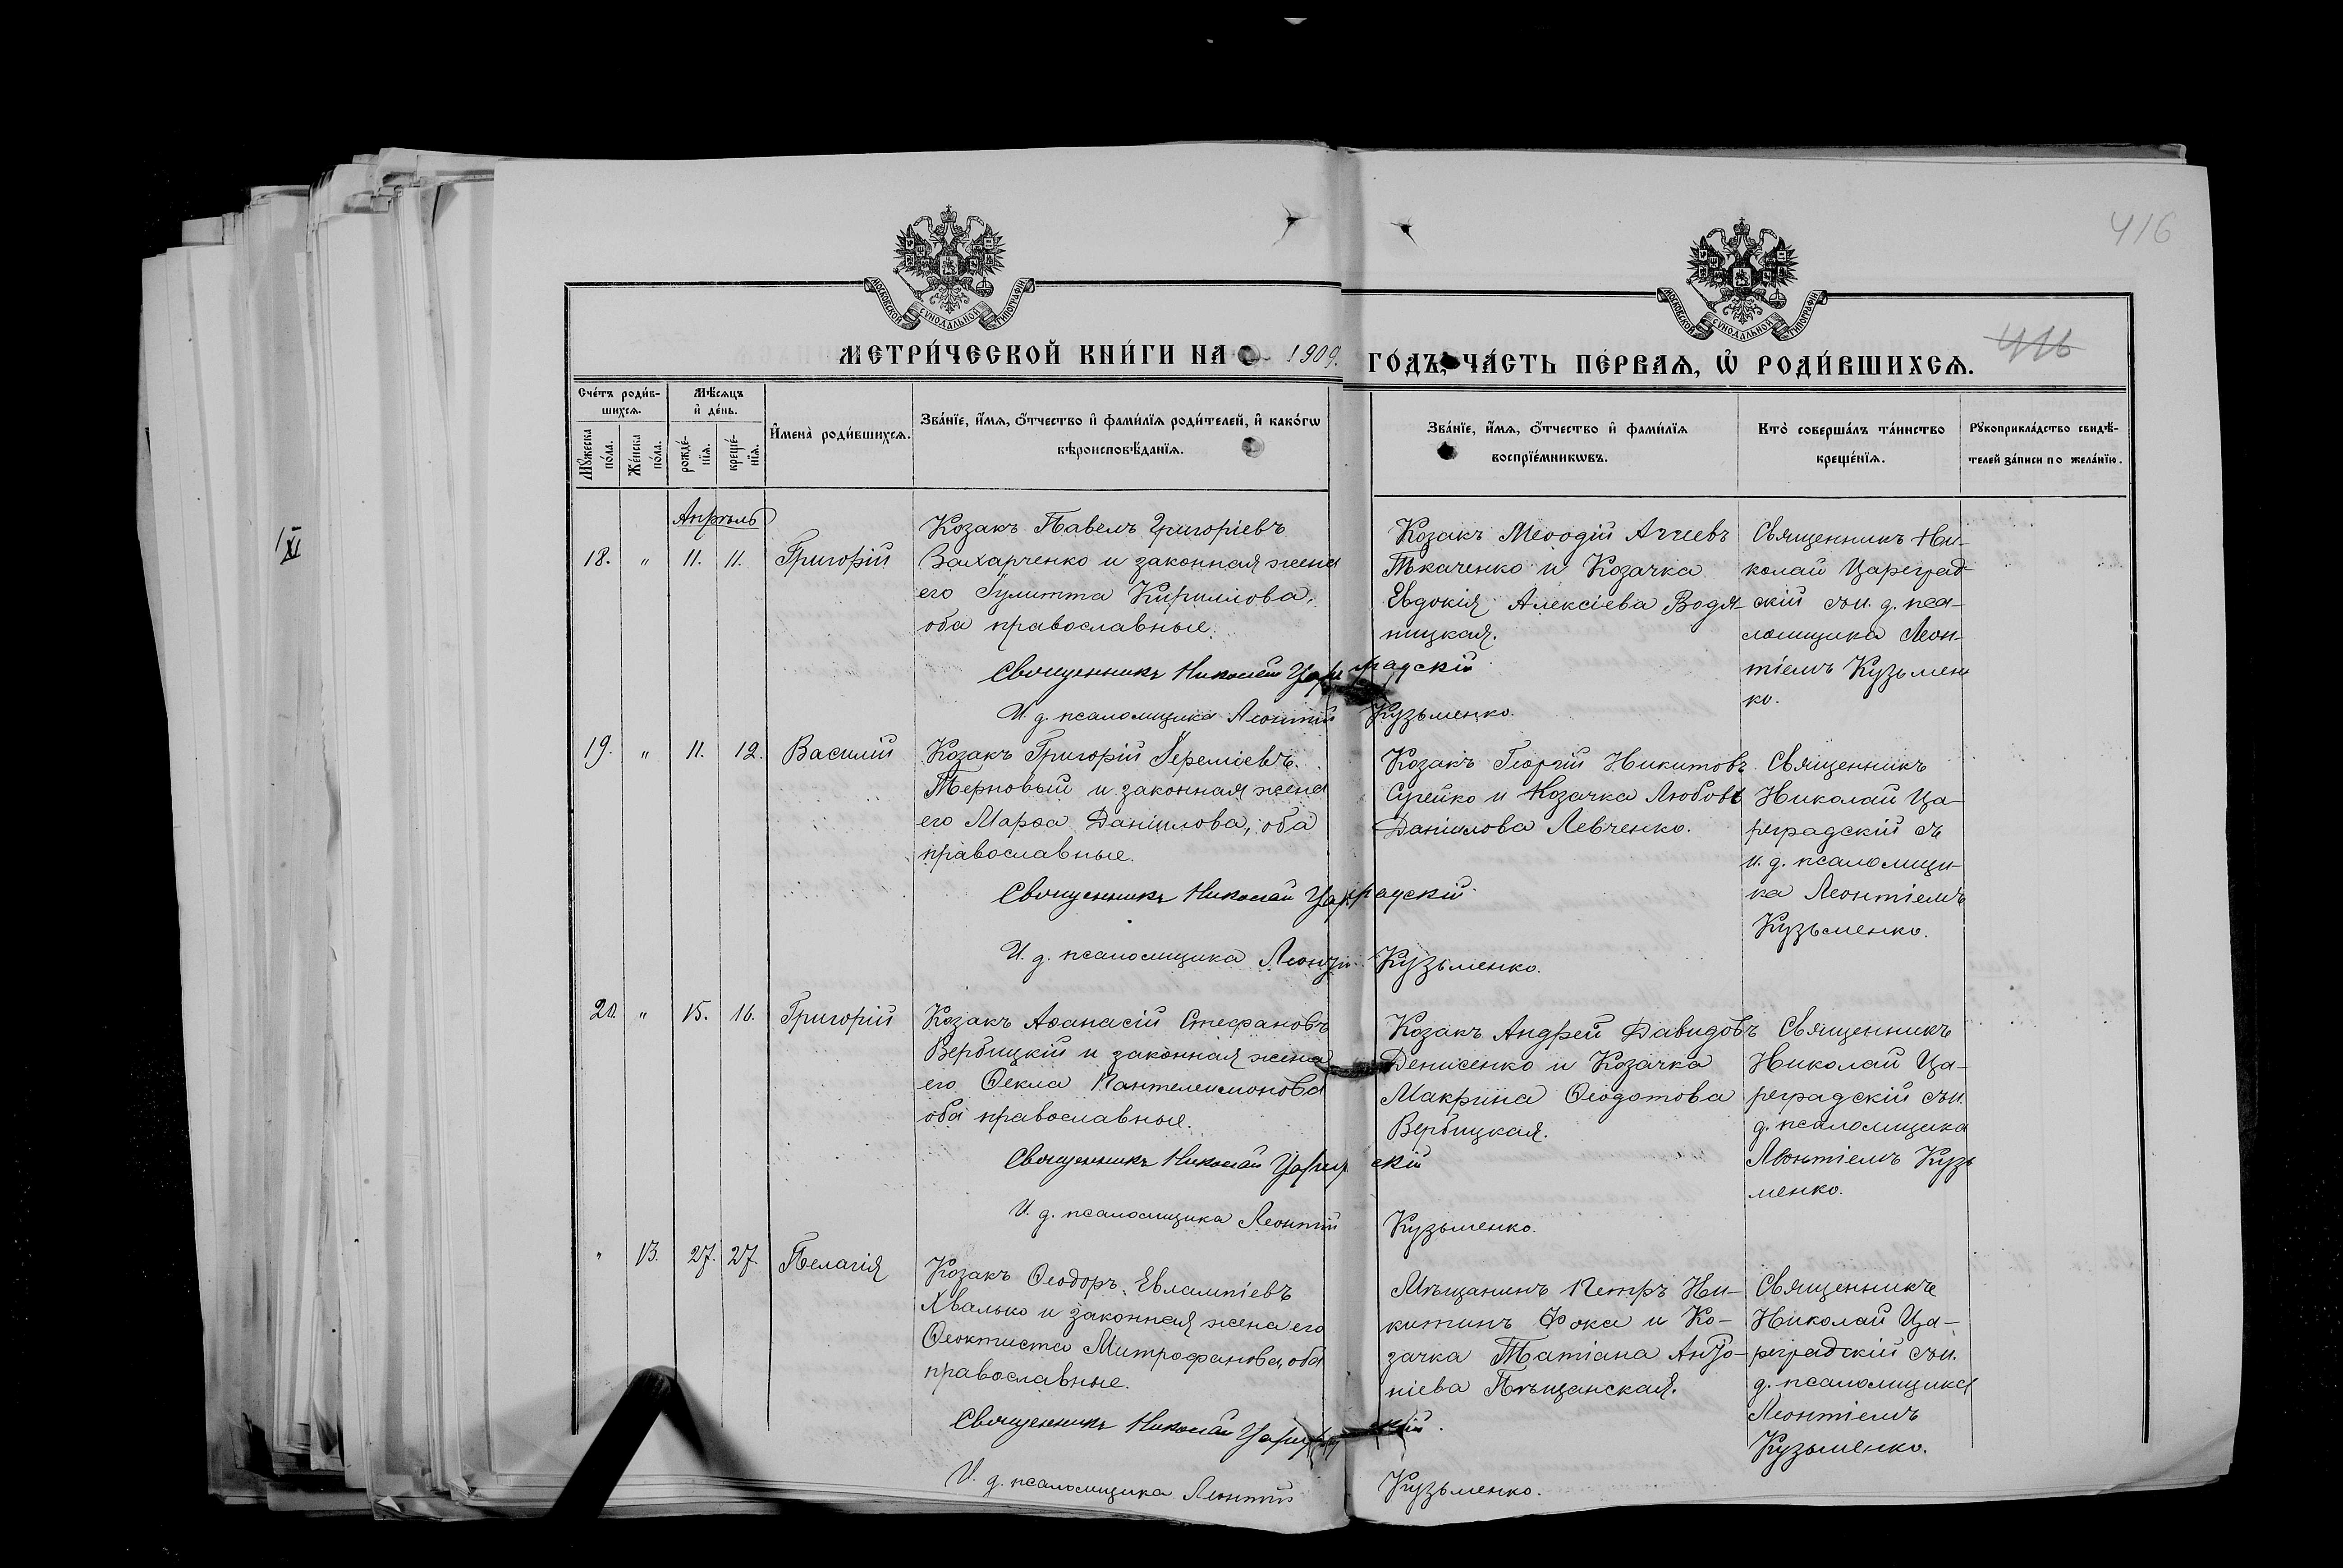 416
416
МОСКОВСКОЙ СѴНОДАЛЬНОЙ ТИПОГРАФІИ
МОСКОВСКОЙ СѴНОДАЛЬНОЙ ТИПОГРАФІИ
МЕТРИ́ЧЕСКОЙ КНИ́ГИ НА 1909. ГО́ДЪ, ЧА́СТЬ ПЕ́РВАѦ, Ѽ РОДИ́ВШИХСѦ.
Сче́тъ роди́в-
шихсѧ.
Мꙋжеска по́ла.
Же́нска по́ла.
Мѣ́сѧцъ
и҆ де́нь.
рожде́-
нїѧ.
креще́-
нїѧ.
И҆мена̀ роди́вшихсѧ.
Зва́нїе, и҆́мѧ, ѻ҆́тчество и҆ фами́лїѧ роди́телей, и҆ како́гѡ
вѣроисповѣ́данїѧ.
Зва́нїе, и҆́мѧ, ѻ҆́тчество и҆ фами́лїѧ
воспрїе́мникѡвъ.
Кто̀ соверша́лъ та́инство
креще́нїѧ.
Рꙋкоприкла́дство свидѣ́-
телей за́писи по жела́нїю.
XI
Апрѣль
18. " 11. 11. Григорій
Козакъ Павелъ Григоріевъ
Захарченко и законная жена
его Іулитта Кириллова,
оба православные.
Козакъ Меѳодій Аггеевъ
Ткаченко и Козачка
Евдокія Алексіева Водя-
ницкая.
Священникъ Ни-
колай Цареград-
скій съ и. д. пса-
ломщика Леон-
тіемъ Кузьмен
ко.
Священникъ Николай Цареградскій
И. д. псаломщика Леонтій Кузьменко.
19. " 11. 12. Василій
Козакъ Григорій Іереміевъ
Терновый и законная жена
его Марѳа Даніилова, оба
православные.
Козакъ Георгій Никитовъ
Сѣрейко и Козачка Любовь
Даніилова Левченко.
Священникъ
Николай Ца-
реградскій съ
и. д. псаломщи-
ка Леонтіемъ
Кузьменко.
Священникъ Николай Цареградскій
И. д. псаломщика Леонтій Кузьменко.
20. " 15. 16. Григорій
Козакъ Аѳанасій Стефановъ
Вербицкій и законная жена
его Ѳекла Пантелеимонова
оба православные.
Козакъ Андрей Давидовъ
Денисенко и Козачка
Макрина Ѳеодотова
Вербицкая.
Священникъ
Николай Ца-
реградскій съ и.
д. псаломщика
Леонтіемъ Кузь
менко.
Священникъ Николай Цареградскій
И. д. псаломщика Леонтій Кузьменко.
" 13. 27. 27 Пелагія
Козакъ Ѳеодоръ Евлампіевъ
Хвалько и законная жена его
Ѳеоктиста Митрофанова, оба
православные.
Мѣщанинъ Петръ Ни-
китинъ Фока и Ко-
зачка Татіана Анто-
ніева Пѣщанская.
Священникъ
Николай Ца-
реградскій съ и.
д. псаломщика
Леонтіемъ
Кузьменко.
Священникъ Николай Цареградскій.
И. д. псаломщика Леонтій Кузьменко.